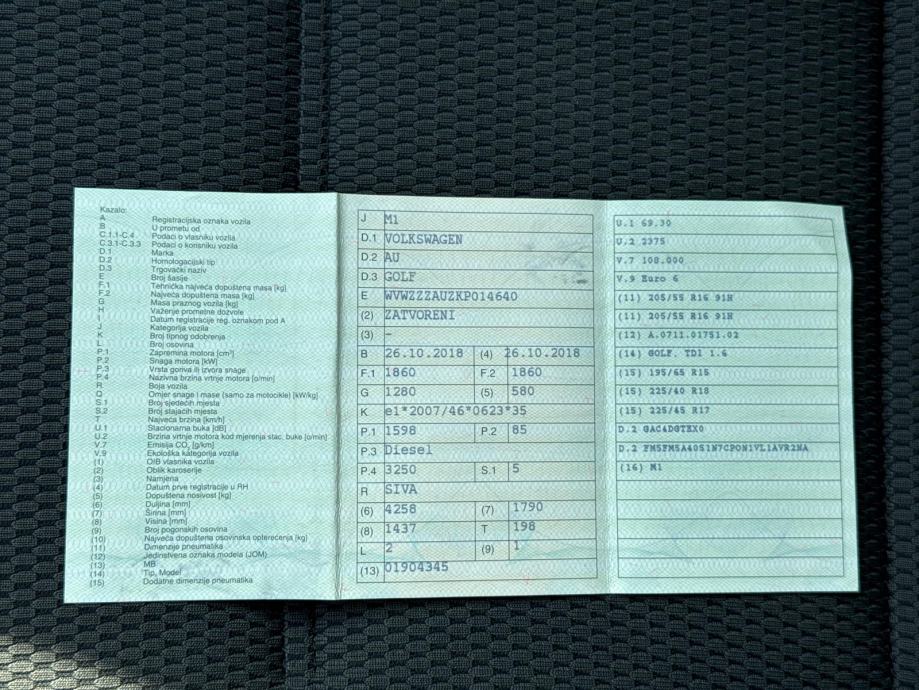 Kazalo:
A Registracijska oznaka vozila
B U prometu od
C.1.1-C.4 Podaci o vlasniku vozila
C.3.1-C.3.3 Podaci o korisniku vozila
D.1 Marka
D.2 Homologacijski tip
D.3 Trgovački naziv
E Broj šasije
F.1 Tehnička najveća dopuštena masa [kg]
F.2 Najveća dopuštena masa [kg]
G Masa praznog vozila [kg]
H Važenje prometne dozvole
I Datum registracije reg. oznakom pod A
J Kategorija vozila
K Broj tipnog odobrenja
L Broj osovina
P.1 Zapremina motora [cm³]
P.2 Snaga motora [kW]
P.3 Vrsta goriva ili izvora snage
P.4 Nazivna brzina vrtnje motora [o/min]
R Boja vozila
Q Omjer snage i mase (samo za motocikle) [kW/kg]
S.1 Broj sjedećih mjesta
S.2 Broj stajaćih mjesta
T Najveća brzina [km/h]
U.1 Stacionarna buka [dB]
U.2 Brzina vrtnje motora kod mjerenja stac. buke [o/min]
V.7 Emisija CO₂ [g/km]
V.9 Ekološka kategorija vozila
(1) OIB vlasnika vozila
(2) Oblik karoserije
(3) Namjena
(4) Datum prve registracije u RH
(5) Dopuštena nosivost [kg]
(6) Duljina [mm]
(7) Širina [mm]
(8) Visina [mm]
(9) Broj pogonskih osovina
(10) Najveća dopuštena osovinska opterećenja [kg]
(11) Dimenzije pneumatika
(12) Jedinstvena oznaka modela (JOM)
(13) MB
(14) Tip, Model
(15) Dodatne dimenzije pneumatika
J M1
D.1 VOLKSWAGEN
D.2 AU
D.3 GOLF
E WVWZZZAUZKP014640
(2) ZATVORENI
(3) -
B 26.10.2018 (4) 26.10.2018
F.1 1860 F.2 1860
G 1280 (5) 580
K e1*2007/46*0623*35
P.1 1598 P.2 85
P.3 Diesel
P.4 3250 S.1 5
R SIVA
(6) 4258 (7) 1790
(8) 1437 T 198
L 2 (9) 1
(13) 01904345
U.1 69.30
U.2 2375
V.7 108.000
V.9 Euro 6
(11) 205/55 R16 91H
(11) 205/55 R16 91H
(12) A.0711.01751.02
(14) GOLF. TDI 1.6
(15) 195/65 R15
(15) 225/40 R18
(15) 225/45 R17
D.2 GAC4DGTEX0
D.2 FM5FM5A4051N7CPON1VL1AVR2NA
(16) M1